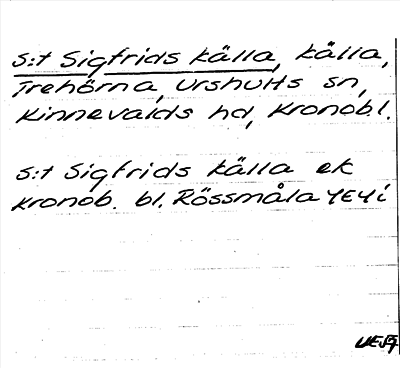 S:t Sigfrids källa, källa,
Trehörna, Urshults sn,
Kinnevalds hd, Kronob.l.
S:t Sigfrids källa ek
kronob. bl. Rössmåla 4E4i